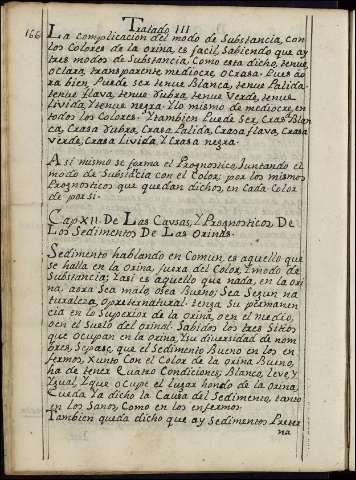 Tratado III
166
La complicacion del modo de Substancia, con
los Colores de la orina, es facil, sabiendo que ay
tres modos de Substancia, Como esta dicho, tenue,
oclara, transparente mediocre, ocrasa. Pues ao
ra bien Puede Ser tenue Blanca, tenue Palida
tenue flava, tenue rubra, tenue Verde, tenue
Livida, Y tenue negra. Y lo mismo de mediocre, en
todos los Colores. Y tambien Puede Ser, Crasa Blan
ca, Crasa rubra, Crasa Palida, Crasa flava, Crasa
Verde, Crasa Livida Y Crasa negra.
Asi mismo se forma el Prognostico, Juntando el
modo de Substācia con el Color; por los mismos
Prognosticos que quedan dichos, en Cada Color
de por si.
Cap XII. De Las Causas, Y Prognosticos, De
Los Sedimentos De Las Orinas.
Sedimento hablando en Comun, es aquello que
se halla en la orina, fuera del Color, Y modo de
Substancia; Y asi es aquello que nada, en la ori
na, aora Sea malo, osea Bueno; Sea Segun na
turaleza, opreternatural tenga Su permanen
cia en lo Superior de la orina, o en el medio,
o en el Suelo del orinal. Sabidos los tres Sitios
que ocupan en la orina, Y su diversidad de nom
bres, Sepase, que el Sedimento Bueno en los en
fermos, Xunto Con el Color de la orina Bueno,
ha de tener Quatro Condiciones; Blanco, leve, Y
Ygual, Y que ocupe el lugar hondo de la orina,
Queda Ya dicho la Causa del Sedimento, tanto
en los Sanos, Como en los enfermos.
Tambien queda dicho que ay Sedimentos Preter
na